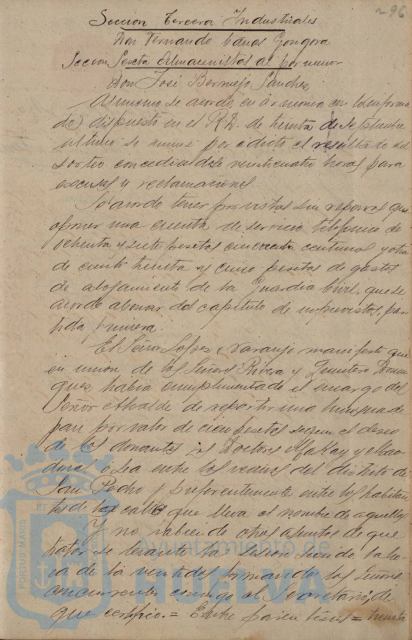 296
Sección Tercera Industriales
Don Fernando Cano Gongora
Sección Sexta Almacenistas al por menor
Don José Bermejo Sánchez
Asimismo se acordó en armonía con lo
dispuesto en el R.D. de treinta de Septiembre
último se anuncie por edicto el resultado del
sorteo concediéndose veinticuatro horas para
excusas y reclamaciones
Se acordó tener por vistas sin reparos que
oponer una cuenta de servicio telefónico de
ochenta y siete pesetas cincuenta centimos y otra
de ciento treinta y cinco pesetas de gastos
de alojamiento de la Guardia Civil que se
acordó abonar del capítulo de imprevistos, par
tida primera
El Señor López Naranjo manifestó que
en unión de los Señores y
había cumplimentado el encargo del
Señor Alcalde de repartir una limosna de
pan por valor de cien pesetas segun el deseo
de los donantes los Doctores Mackay y Mac
donal o sea entre los vecinos del distrito de
San Pedro y preferentemente entre los habitan
tes de la calle que lleva el nombre de aquellos
Y no habiendo otros asuntos de que
tratar se levantó la sesión siendo la ho
ra de las veintidos firmando los Señores
concurrentes conmigo el Secretario de
que certifico.= Entre = treinta
Ayuntamiento de
HUELVA
PORTUS MARIS